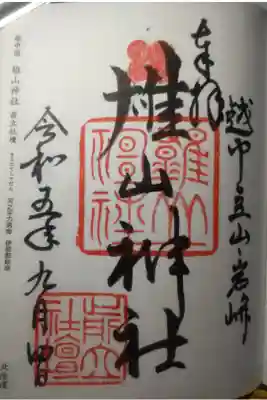 奉拝
越中立山岩峅
雄山神社
雄山神社
前立社壇
令和五年九月四日
越中國 雄山神社 前立社壇